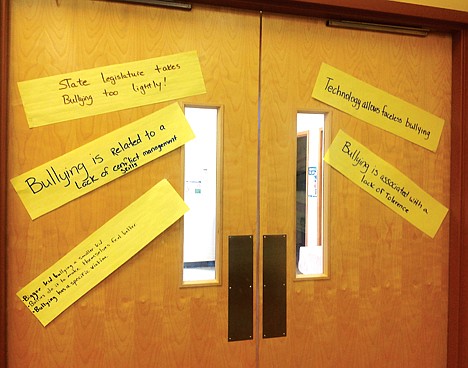 State legislature takes
Bullying too lightly!
Bullying is Related to a
lack of conflict management
skills
-Bigger kid bullying a smaller kid
-Bullies do it to make themselves feel better
-Bullying has a specific victim.
Technology allows faceless bullying
Bullying is associated with a
lack of Tolerence